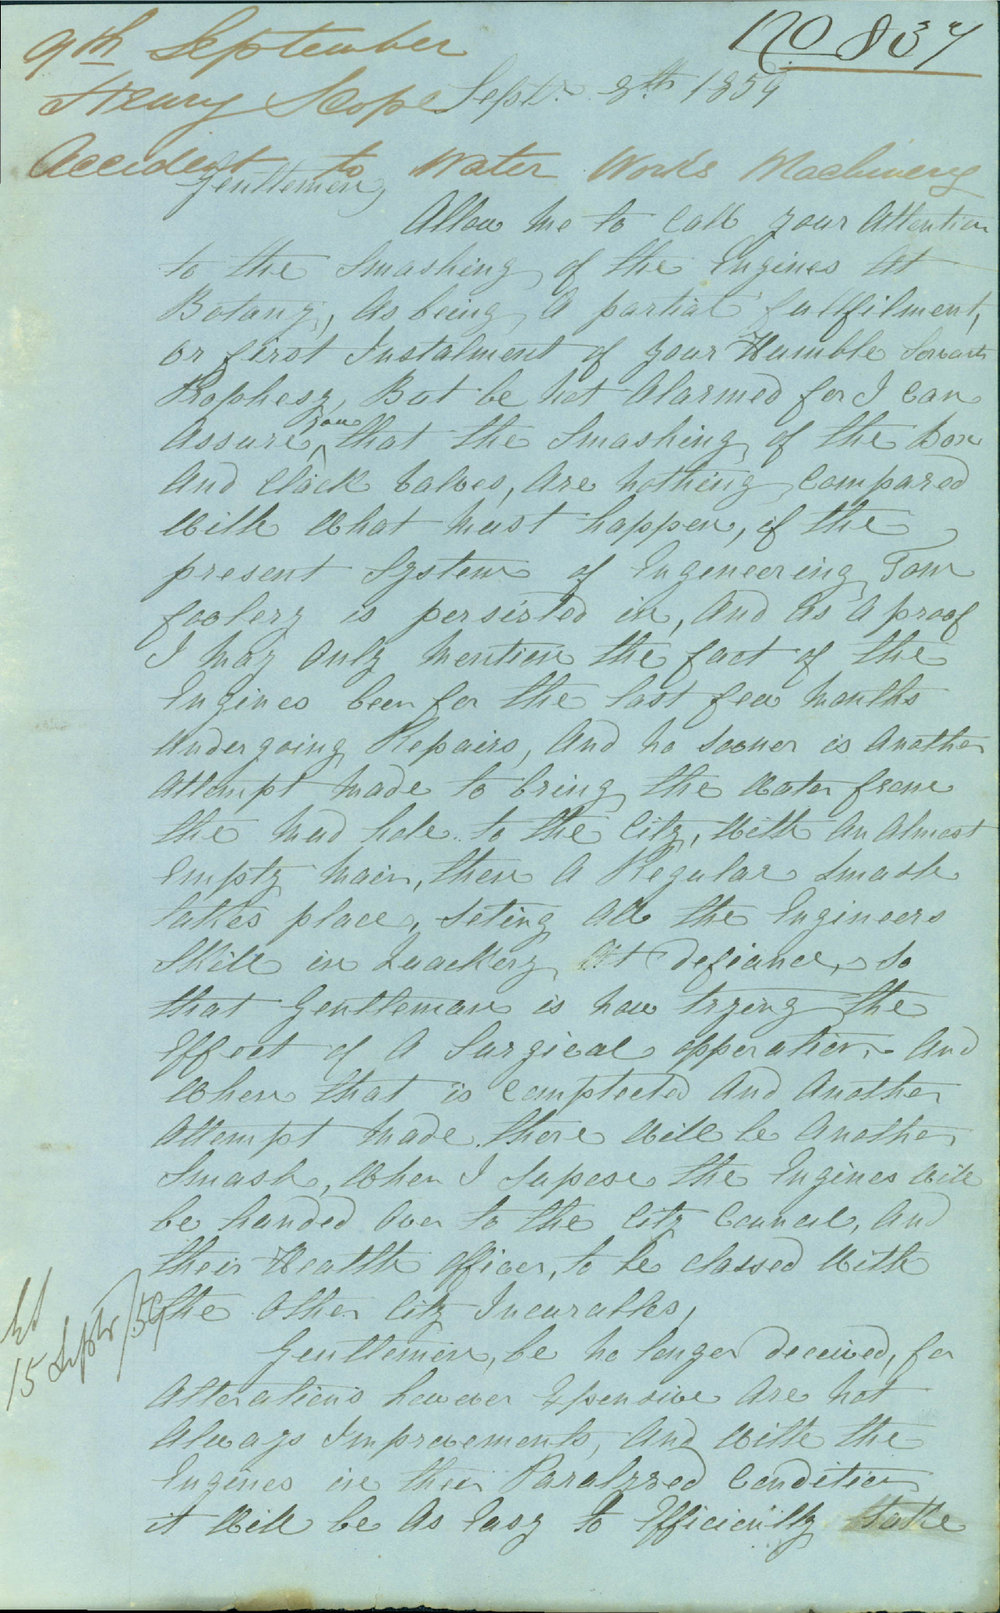 No 837
9th September
Henry Scope
Accident to Water Works Machinery
Septr 8th 1859
Gentlemen,
Allow Me to Call your Attention
to the Smashing of the Engines At
Botany, As being A partial fullfilment,
or first Instalment of your Humble Servants
Prophesy, But be Not Alarmed for I Can
Assure you that the Smashing of the Box
And Clack Valves, Are Nothing Compared
With What Must happen, if the
present System of Engeneering Tom
foolery is persisted in, And As A proof
I May Only Mention the fact of the
Engines been for the last few Months
Undergoing Repairs, And No Sooner is Another
Attempt Made to bring the Water from
the Mud hole to the City, With An Almost
Empty Main, then A Regular Smash
takes place, Seting All the Engineers
Skill in Quackery At defiance, So
that Gentleman is Now trying the
Effect of A Surgical opperation, And
When that is Complected And Another
Attempt Made there Will be Another
Smash, When I Supose the Engines Will
be handed Over to the City Council, And
their Health Officer, to be Classed With
the Other City Incurables,
Gentlemen, be No longer deceived, for
Alterations however Expensive Are Not
Always Improvements, And With the
Engines in their Paralyzed Condition
it Will be As Easy to Efficiently take
15 Septr /59